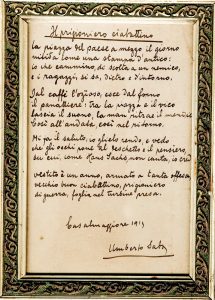 Il prigioniero ciabattino
La piazza del paese a mezzo il giorno
nitida come una stampa d'antico:
io che cammino, di scorta a un nemico,
e i ragazzi, si sa, dietro e d'intorno.
Dal caffè l'ozioso, esce dal forno
il panattiere: tra la pazza e il
lascia il suono, la man ritrae il
Così all'andata, così nel ritorno.
Mi fa il saluto, io glielo rendo, e vedo
che gli occhi pone al deschetto e il pensiero,
su cui, come Hans Sachs, non canta, io credo
vestito è un anno, armato a l'altrui offesa,
vecchio buon ciabattino, prigioniero
di guerra, foglia nel turbine presa.
Casalmaggiore 1919
Umberto Saba